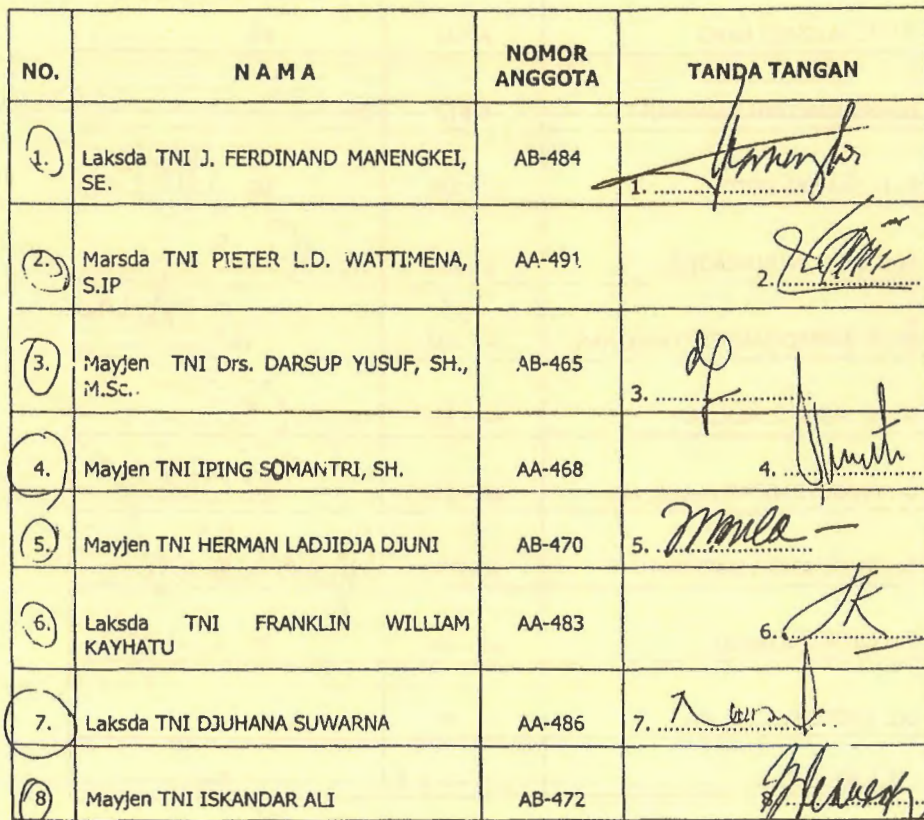 NO. N A M A NOMOR ANGGOTA TANDA TANGAN
1. Laksda TNI J. FERDINAND MANENGKEI, SE. AB-484 1. ....................
2. Marsda TNI PIETER L.D. WATTIMENA, S.IP AA-491 2. ....................
3. Mayjen TNI Drs. DARSUP YUSUF, SH., M.Sc. AB-465 3. ....................
4. Mayjen TNI IPING SOMANTRI, SH. AA-468 4. ....................
5. Mayjen TNI HERMAN LADJIDJA DJUNI AB-470 5. ....................
6. Laksda TNI FRANKLIN WILLIAM KAYHATU AA-483 6. ....................
7. Laksda TNI DJUHANA SUWARNA AA-486 7. ....................
8 Mayjen TNI ISKANDAR ALI AB-472 8. ....................